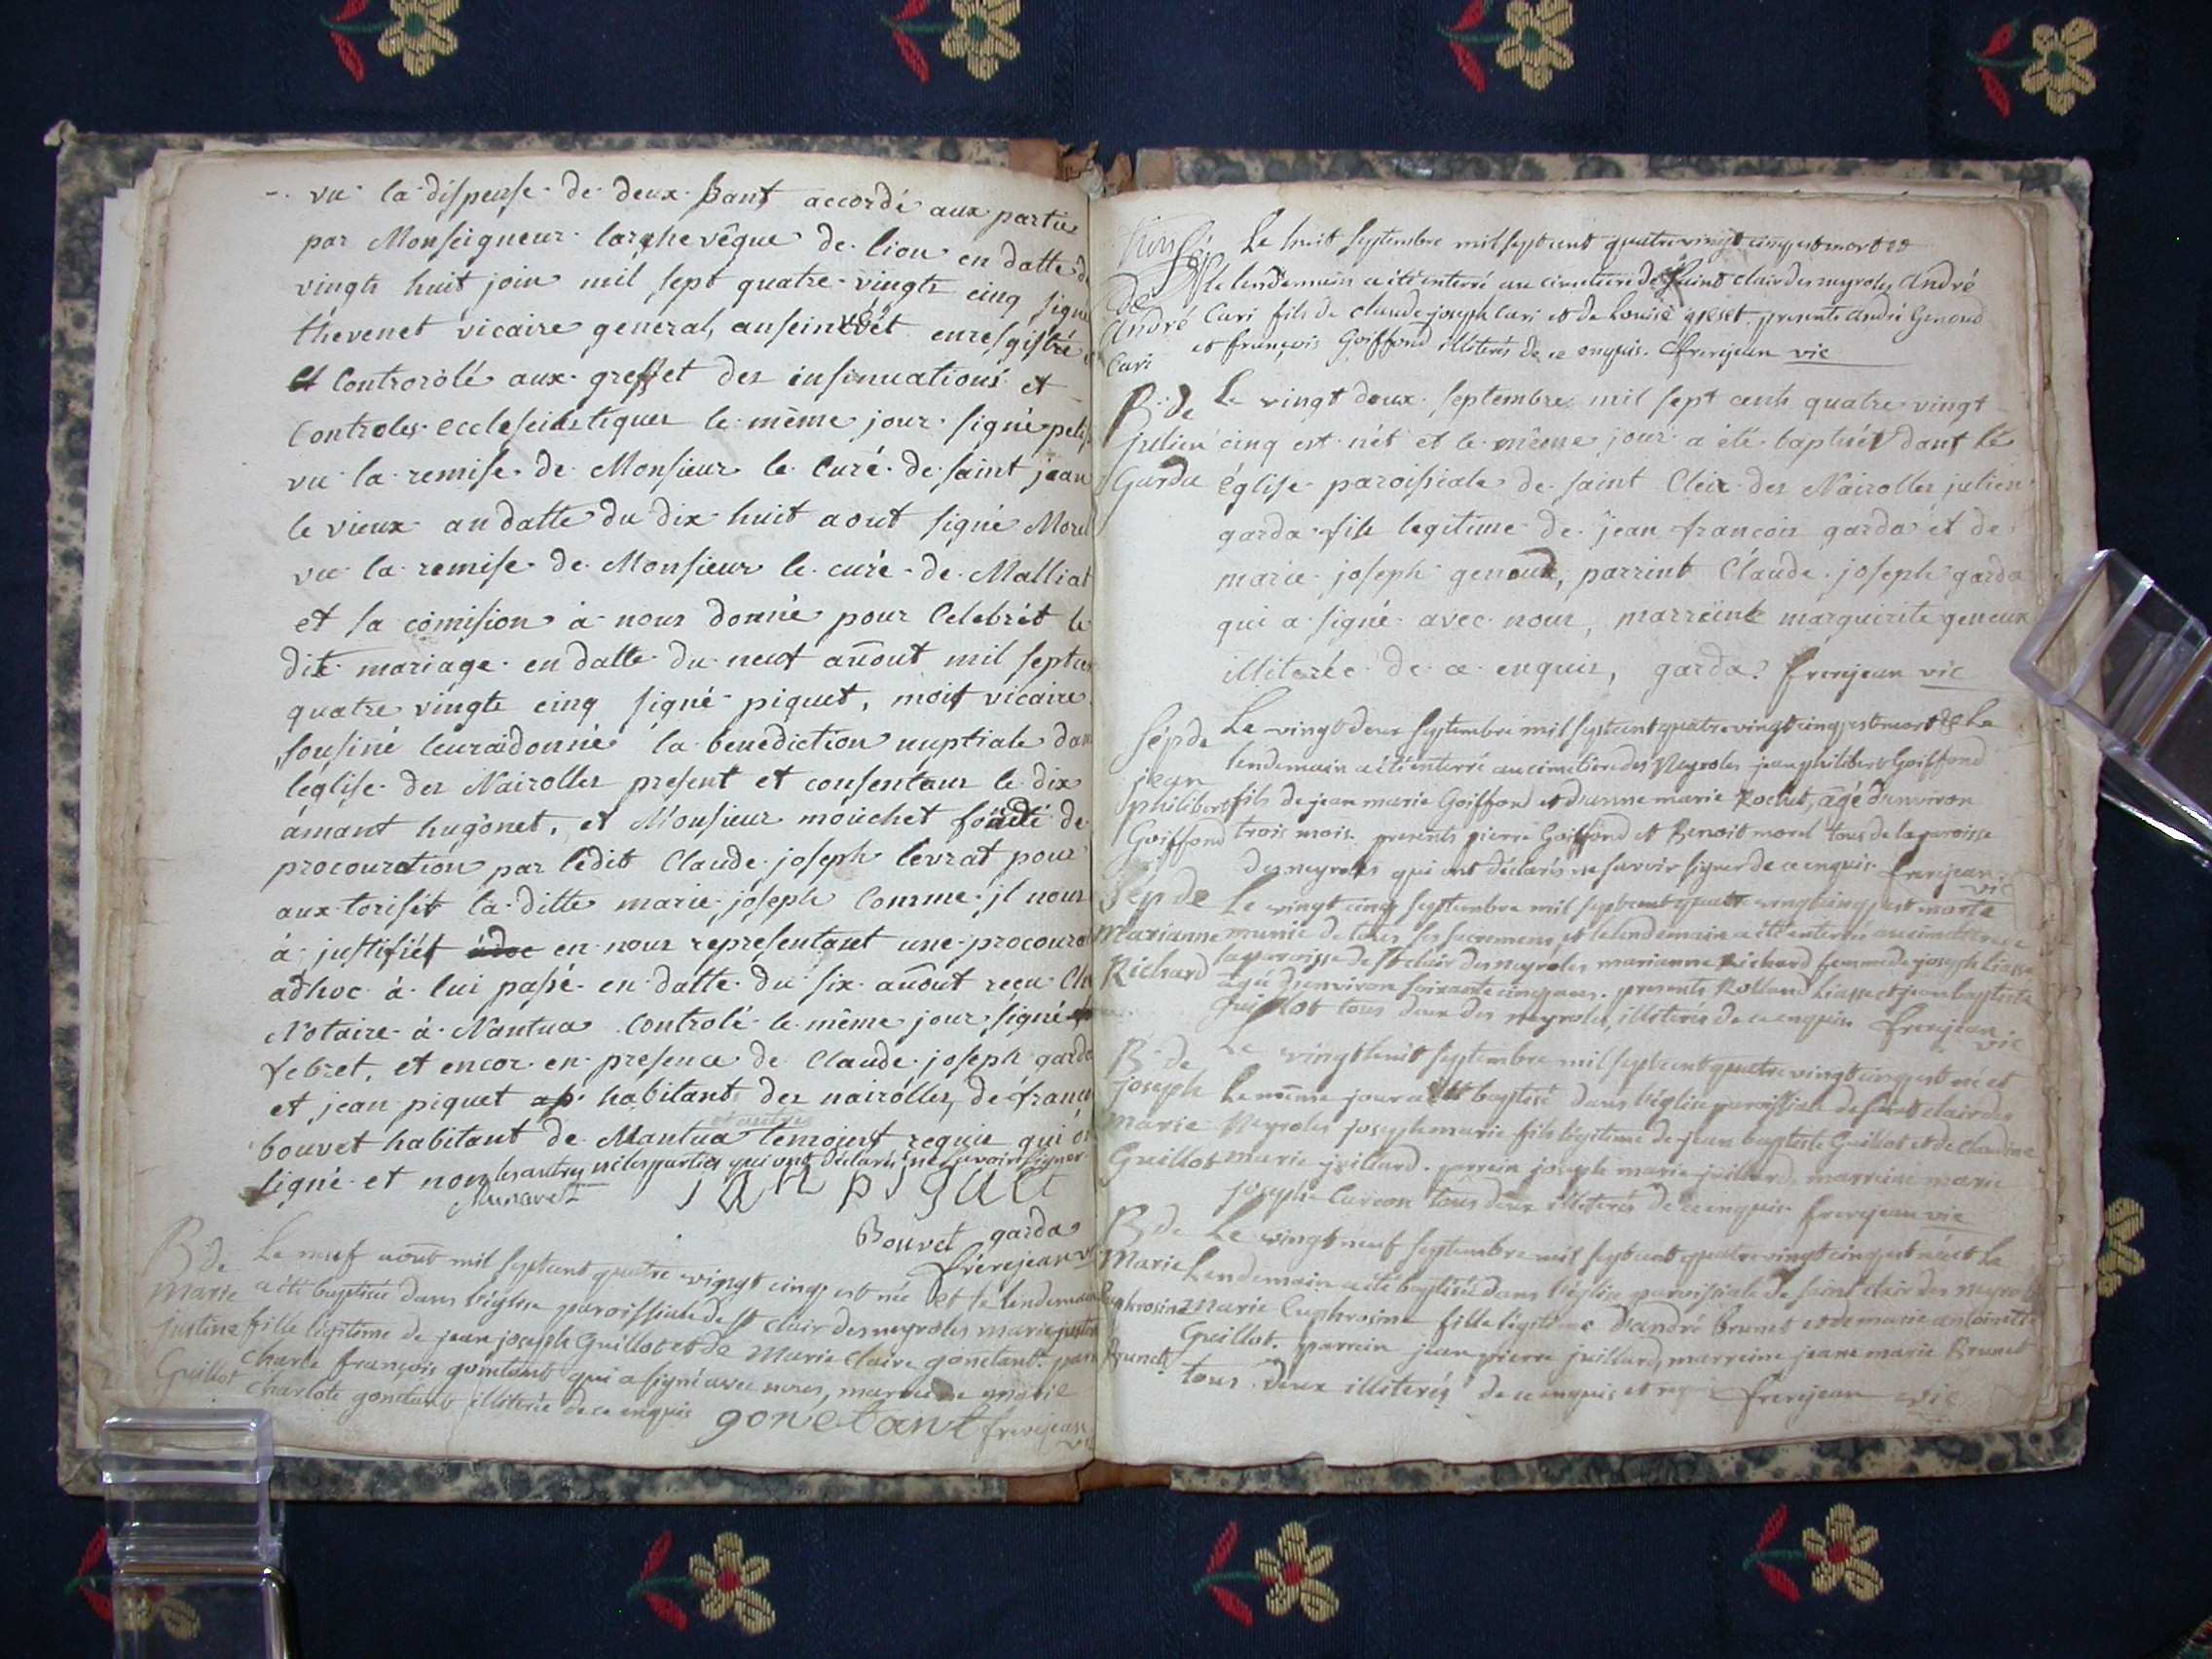 vu la dispense de deux bant accordé aux partie
par Monseigneur larchevêque de lion en datte d
vingts huit join mil sept quatre vingts cinq signé
thevenet vicaire general, enresgistré
et Controrolé aux greffet des insinuations et
Controles eccleseiastiques le même jour signé
vu la remise de Monsieur le Curé de saint jean
le vieux an datte du dix huit aout signé Morel
vu la remise de Monsieur le curé de Malliat
et sa comision à nous donnée pour Celebrét le
dit mariage en datte du neuf auout mil sept
quatre vingts cinq signé piquet, moit vicaire
sousiné leuraidonné la benediction nuptiale dan
leglise des Nairolles present et consentant le dix
amant hugonet, et Monsieur mouchet fondé de
procouration par ledit Claude joseph levrat pour
aux torisét la ditte marie joseph Comme il nous
à justifiét adoc en nous representant une procoura
adhoc à lui passé en datte du six auout reçu
Notaire à Nantua Controlé le même jour signé
febret, et encor en presence de Claude joseph garda
et jean piquet habitants des nairolles, de françois
et autres
bouvet habitant de Mantua temojent requie qui on
signé et non les autres ni les parties qui ont déclarés ne savoir signer
jan piquet
Bouvet garda
frérejean vi
B de Le neuf aoüt mil septcent quatre vingt cinq est née et le lendemain
marie a été baptisée dans l'église paroissiale de st clair des neyroles marie justine
justine fille légitime de jean joseph Guillot et de Marie claire gonetant. parr
Guillot charle françois gonetant qui a signé avec nous, marreine marie
charlote gonetant illiterée de ce enquis gonetant frerejean
vi
Sép Le huit septembre mil septcent quatre vingt cinq est mort et
de le lendemain a été enterré au cimetiere de saint clair des neyroles André
André Cari fils de claude joseph Cari et de Louise presents André Genoud
Cari et françois Goiffond illiterés de ce enquis. frerejean vic
B de Le vingt deux septembre mil sept cents quatre vingt
julien cinq est nét et le même jour a été baptisét dant le
Garda église paroissiale de saint Cleir des Nairolles julien
garda fils legitime de jean francois garda et de
marie joseph genoud, parrint Claude joseph garda
qui a signé avec nous, marreint marguerite geneux
illiterée de ce enquis, garda frerejean vic
Sép de Le vingt deux septembre mil septcent quatre vingt cinq est mort et le
jean lendemain a été enterré au cimetiere des Neyroles jean philibert Goiffond
philibert fils de jean marie Goiffond et d'anne marie Rochet, âgé d'environ
Goiffond trois mois. presents pierre Goiffond et Benoit morel tous de la paroisse
des neyroles qui ont déclarés ne savoir signer de ce enquis. frerejean
vic
Sép de Le vingt cinq septembre mil septcent quatre vingt cinq est morte
Marianne munie de tous ses sacremens et le lendemain a été enterrée au cimetiere de
Richard la paroisse de st clair des neyroles marianne Richard femme de joseph
agée d'environ soixante cinq ans. presents Rolland et jean baptiste
Guillot tous deux des neyroles, illiterés de ce enquis frerejean
vic
B de Le vingt huit septembre mil septcent quatre vingt cinq est né et
joseph Le même jour a été baptisé dans l'église paroissiale de saint clair des
marie Neyroles joseph marie fils légitime de jean baptiste Guillot et de claudine
Guillot marie juillard. parrein joseph marie juillard, marreine marie
josephe Carion tous deux illiterés de ce enquis. frerejean vic
B de Le vingt neuf septembre mil septcent quatre vingt cinq est née et le
Marie Lendemain a été baptisée dans l'église paroissiale de saint clair des neyroles
Euphrosine Marie Euphrosine fille légitime d'andré brunet et de marie antoinette
Brunet Guillot. parrein jean pierre juillard, marreine jeane marie Brunet
tous deux illiterés de ce enquis et requis frerejean vic